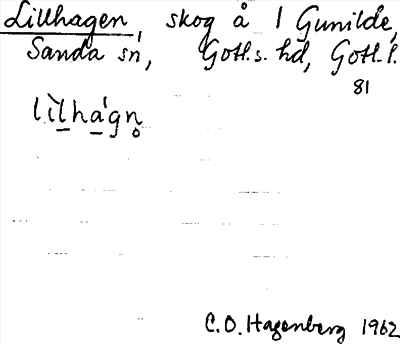 Lillhagen, skog å 1 Gunilde,
Sanda sn, Gotl. s. hd, Gotl. l.
81
lìlhágn̥
C. O. Hagenberg 1962